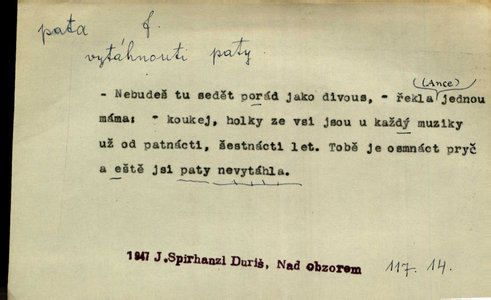 pata f.
vytáhnouti paty
(Ance)
- Nebudeš tu sedět porád jako divous, - řekla jednou
máma: - koukej, holky ze vsi jsou u každý muziky
už od patnácti, šestnácti let. Tobě je osmnáct pryč
a eště jsi paty nevytáhla.
1947 J. Spirhanzl Duriš, Nad obzorem 117. 14.